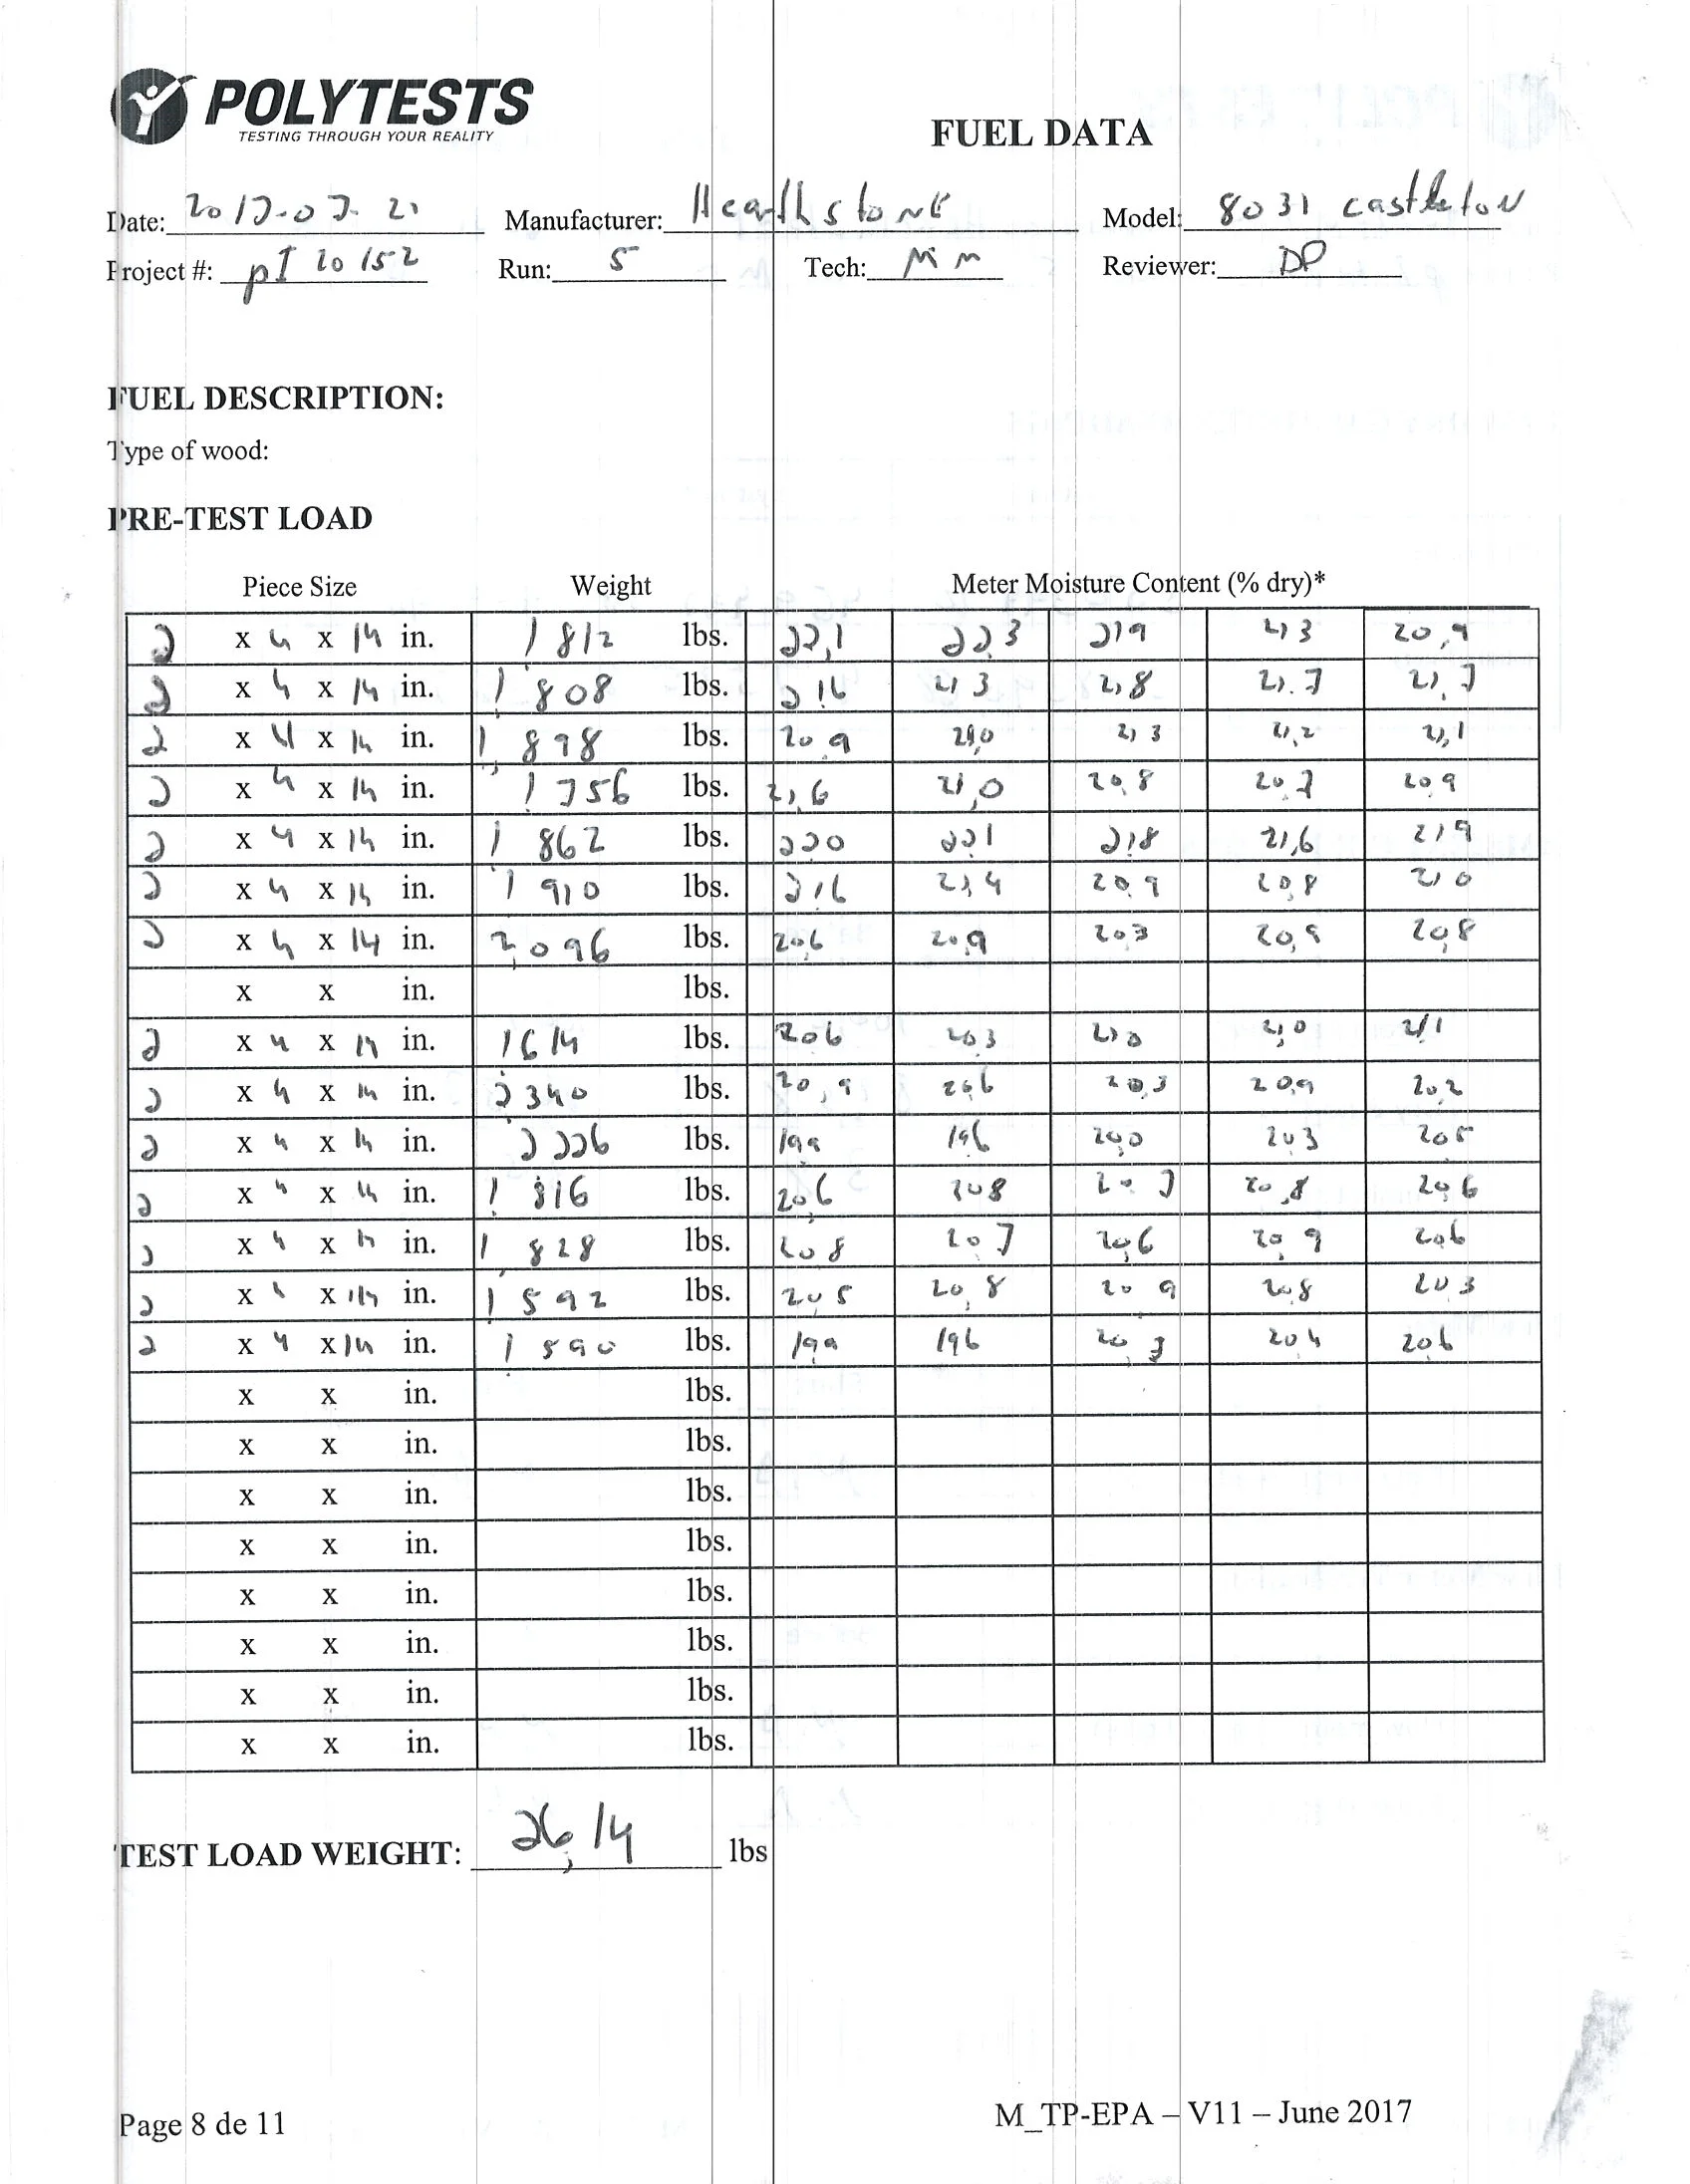 POLYTESTS
TESTING THROUGH YOUR REALITY
FUEL DATA
Date: 2017-07-21 Manufacturer: Hearthstone Model: 8031 castleton
Project #: pI 20152 Run: 5 Tech: MM Reviewer: DP
FUEL DESCRIPTION:
Type of wood:
PRE-TEST LOAD
Piece Size Weight Meter Moisture Content (% dry)*
2 x 4 x 14 in. 1,812 lbs. 22,1 22,3 21,9 21,3 20,9
2 x 4 x 14 in. 1,808 lbs. 21,6 21,3 21,8 21,7 21,7
2 x 4 x 14 in. 1,898 lbs. 20,9 21,0 21,3 21,2 21,1
2 x 4 x 14 in. 1,756 lbs. 21,6 21,0 20,8 20,7 20,9
2 x 4 x 14 in. 1,862 lbs. 22,0 22,1 21,8 21,6 21,9
2 x 4 x 14 in. 1,910 lbs. 21,6 21,4 20,9 20,8 21,0
2 x 4 x 14 in. 2,096 lbs. 20,6 20,9 20,3 20,9 20,8
x x in. lbs.
2 x 4 x 14 in. 1,614 lbs. 20,6 20,3 21,0 21,0 21,1
2 x 4 x 14 in. 2,340 lbs. 20,9 20,6 20,3 20,9 20,2
2 x 4 x 14 in. 2,226 lbs. 19,9 19,6 20,0 20,3 20,5
2 x 4 x 14 in. 1,816 lbs. 20,6 20,8 20,7 20,8 20,6
2 x 4 x 14 in. 1,828 lbs. 20,8 20,7 20,6 20,9 20,6
2 x 4 x 14 in. 1,592 lbs. 20,5 20,8 20,9 20,8 20,3
2 x 4 x 14 in. 1,590 lbs. 19,9 19,6 20,3 20,4 20,6
x x in. lbs.
x x in. lbs.
x x in. lbs.
x x in. lbs.
x x in. lbs.
x x in. lbs.
x x in. lbs.
x x in. lbs.
TEST LOAD WEIGHT: 26,14 lbs
Page 8 de 11 M_TP-EPA – V11 – June 2017